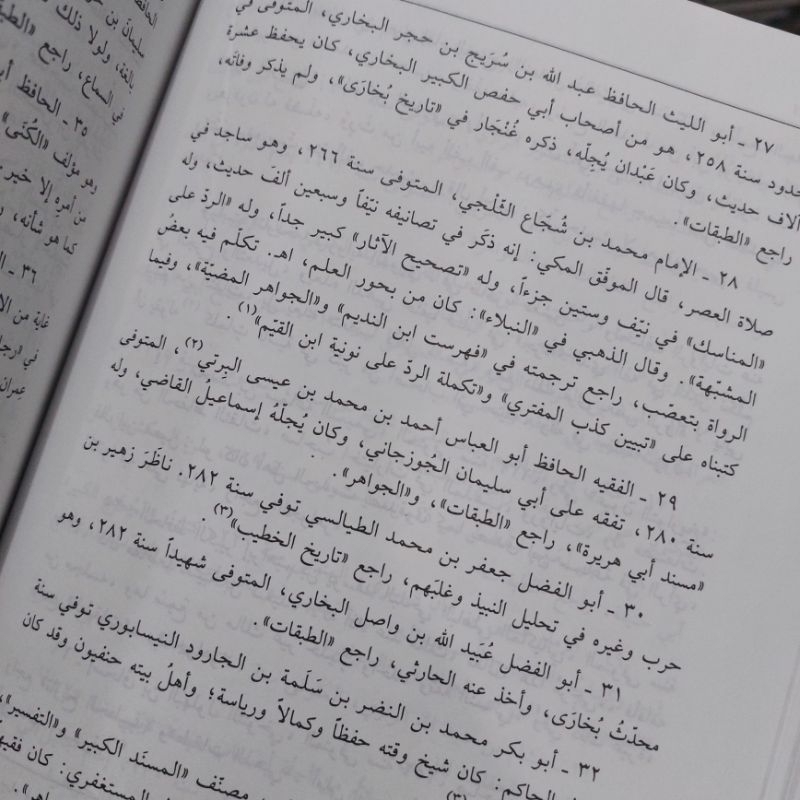 ٢٧ ـ أبو الليث الحافظ عبد الله بن سُرَيج بن حجر البخاري، المتوفى في
حدود سنة ٢٥٨، هو من أصحاب أبي حفص الكبير البخاري، كان يحفظ عشرة
آلاف حديث، وكان عَبْدان يُجِلّه، ذكره غُنْجَار في «تاريخ بُخارَى»، ولم يذكر وفاته،
راجع «الطبقات».
٢٨ ـ الإمام محمد بن شُجَاع الثَّلْجي، المتوفى سنة ٢٦٦، وهو ساجد في
صلاة العصر، قال الموفَّق المكي: إنه ذكَر في تصانيفه نيّفاً وسبعين ألفَ حديث، وله
«المناسك» في نيّف وستين جزءاً، وله «تصحيح الآثار» كبير جداً، وله «الردّ على
المشبّهة». وقال الذهبي في «النبلاء»: كان من بحور العلم، اهـ. تكلّم فيه بعضُ
الرواة بتعصّب، راجع ترجمته في «فهرست ابن النديم» و«الجواهر المضيّة»، وفيما
كتبناه على «تبيين كذب المفتري» و«تكملة الردّ على نونية ابن القيّم»(١).
٢٩ ـ الفقيه الحافظ أبو العباس أحمد بن محمد بن عيسى البِرتي(٢)، المتوفى
سنة ٢٨٠، تفقه على أبي سليمان الجُوزجاني، وكان يُجلّهُ إسماعيلُ القاضي، وله
«مسند أبي هريرة»، راجع «الطبقات»، و«الجواهر».
٣٠ ـ أبو الفضل جعفر بن محمد الطيالسي توفي سنة ٢٨٢. ناظَرَ زهير بن
حرب وغيره في تحليل النبيذ وغلبَهم، راجع «تاريخ الخطيب»(٣).
٣١ ـ أبو الفضل عُبَيد الله بن واصل البخاري، المتوفى شهيداً سنة ٢٨٢، وهو
محدّثُ بُخارَى، وأخذ عنه الحارثي، راجع «الطبقات».
٣٢ ـ أبو بكر محمد بن النضر بن سَلَمة بن الجارود النيسابوري توفي سنة
الحاكم: كان شيخ وقته حفظاً وكمالاً ورياسة؛ وأهلُ بيته حنفيون وقد كان
مصنّف «المسنَد الكبير» و«التفسير»،
المستغفري: كان
٣٥ ـ الحافظ
وهو مؤلف «الكُنَى»
من أمره إلا خير.
كما هو شأنه،
٣٦ ـ
غاية من